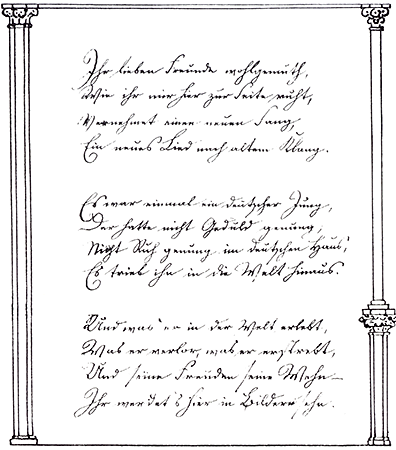 Ihr lieben Freunde wohlgemuth,
Wie ihr mir hier zur Seite ruht,
Vernehmet einen neuen Sang,
Ein neues Lied nach altem Klang.
Es war einmal ein deutscher Jung,
Der hatte nicht Geduld genung,
Nicht Ruh genung im deutschen Haus,
Es trieb ihn in die Welt hinaus.
Und was er in der Welt erlebt,
Was er verlor, was er erstrebt,
Und seine Freuden seine Wehn –
Ihr werdet's hier in Bildern sehn.